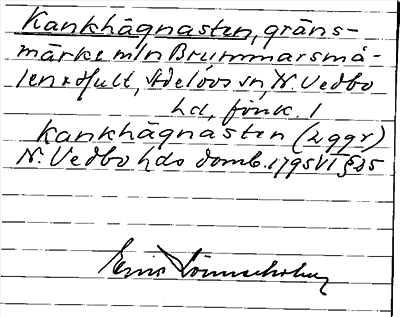 Kankhägnasten, gräns-
märke mln Brummarsmå-
len o Hult, Adelövs sn, N. Vedbo
hd, Jönk. l
Kankhägnasten (2 ggr)
N. Vedbo hds domb. 1795 VI § 25